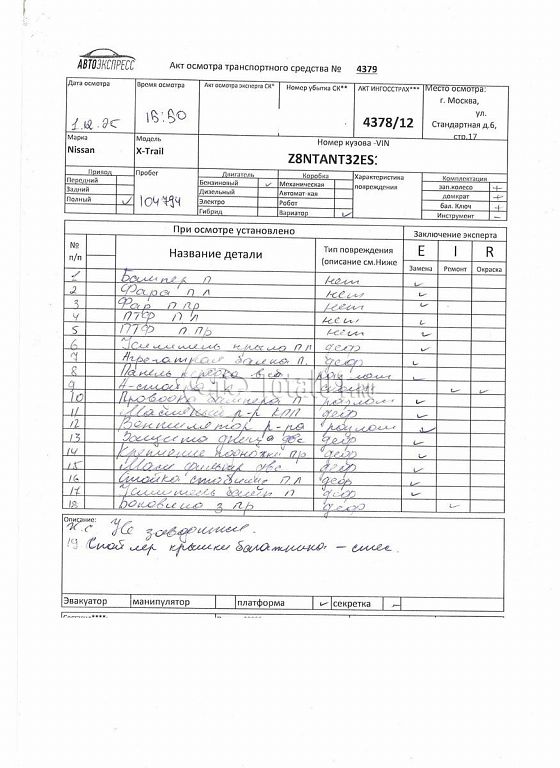 АВТОЭКСПРЕСС
Акт осмотра транспортного средства № 4379
Дата осмотра Время осмотра Акт осмотра эксперта СК* Номер убытка СК** АКТ ИНГОССТРАХ*** Место осмотра:
1.12.25 15:50 4378/12 г. Москва,
ул.
Стандартная д.6,
стр.17
Марка Модель Номер кузова -VIN
Nissan X-Trail Z8NTANT32ES:
Привод Пробег Двигатель Коробка Характеристика повреждения Комплектация
Передний Бензиновый ✓ Механическая зап.колесо +
Задний 104794 Дизельный Автомат-кая домкрат +
Полный ✓ Электро Робот бал. Ключ +
Гибрид Вариатор ✓ Инструмент -
При осмотре установлено Заключение эксперта
№ п/п Название детали Тип повреждения (описание см.Ниже E I R
Замена Ремонт Окраска
1 Бампер п нет ✓
2 Фара п л нет ✓
3 Фар п пр нет ✓
4 ПТФ п л нет ✓
5 ПТФ п пр нет ✓
6 Усилитель крыла п л деф ✓
7 Агрегатная балка п. деф ✓
8 Панель передка разлом ✓
9 А-стойка ✓ ✓
10 Проводка бампера п разлом ✓
11 Масляный р-р КПП деф ✓
12 Вентилятор р-ра разлом ✓
13 Защита днища двс деф ✓
14 Крепление подножки пр деф ✓
15 фильтр двс деф ✓
16 Стойка п л деф ✓
17 Усилитель п деф ✓
18 Боковина з пр деф ✓
Описание:
Н.с Не заводится.
19 Спойлер крышки багажника -
Эвакуатор манипулятор платформа ✓ секретка -